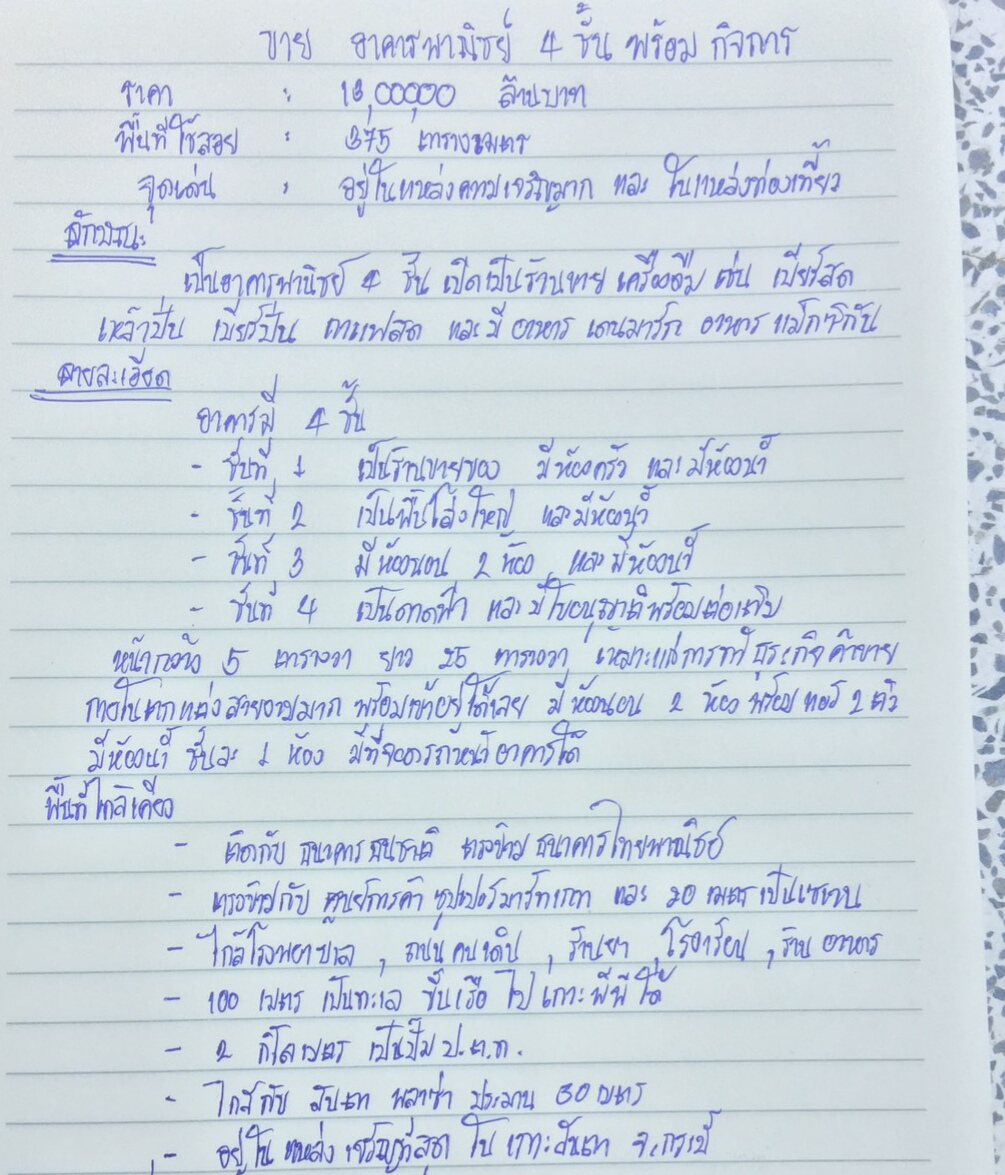 ขาย อาคารพาณิชย์ 4 ชั้น พร้อม กิจการ
ราคา : 13,00000 ล้านบาท
พื้นที่ใช้สอย : 375 ตารางเมตร
จุดเด่น : อยู่ในแหล่งความเจริญมาก และ ในแหล่งท่องเที่ยว
ลักษณะ
เป็นอาคารพานิชย์ 4 ชั้น เปิดเป็นร้านขาย เครื่องดื่ม เช่น เบียร์สด
เหล้าปั่น เบียร์ปั่น กาแฟสด และ มี อาหาร เดนมาร์ก อาหาร แม็กซิกัน
ลายละเอียด
อาคารมี 4 ชั้น
- ชั้นที่ 1 เป็นร้านขายของ มีห้องครัว และ มีห้องน้ำ
- ชั้นที่ 2 เป็นพื้นโล่งใหญ่ และมีห้องน้ำ
- ชั้นที่ 3 มีห้องนอน 2 ห้อง และ มีห้องน้ำ
- ชั้นที่ 4 เป็นดาดฟ้า และ มีใบอนุญาติพร้อมต่อเติม
หน้ากว้าง 5 ตารางวา ยาว 25 ตารางวา เหมาะแก่การทำธุระกิจ ค้าขาย
ภายในตกแต่งสวยงามมาก พร้อมเข้าอยู่ได้เลย มีห้องนอน 2 ห้อง พร้อม แอร์ 2 ตัว
มีห้องน้ำ ชั้นละ 1 ห้อง มีที่จอดรถหน้าอาคารได้
พื้นที่ใกล้เคียง
- ติดกับ ธนาคาร ธนชาติ ตรงข้าม ธนาคารไทยพาณิชย์
- ตรงข้ามกับ ศูนย์การค้า ซุปเปอร์มาร์ทเกต และ 20 เมตร เป็นเซเว่น
- ใกล้โรงพยาบาล , ถนนคนเดิน , ร้านยา , โรงเรียน , ร้าน อาหาร
- 100 เมตร เป็นทะเล ขึ้นเรือ ไป เกาะพีพี ได้
- 2 กิโลเมตร เป็นปั้ม ป.ต.ท.
- ใกล้กับ ลันตา พลาซ่า ประมาน 30 เมตร
- อยู่ใน แหล่ง เจริญที่สุด ใน เกาะลันตา จ.กระบี่